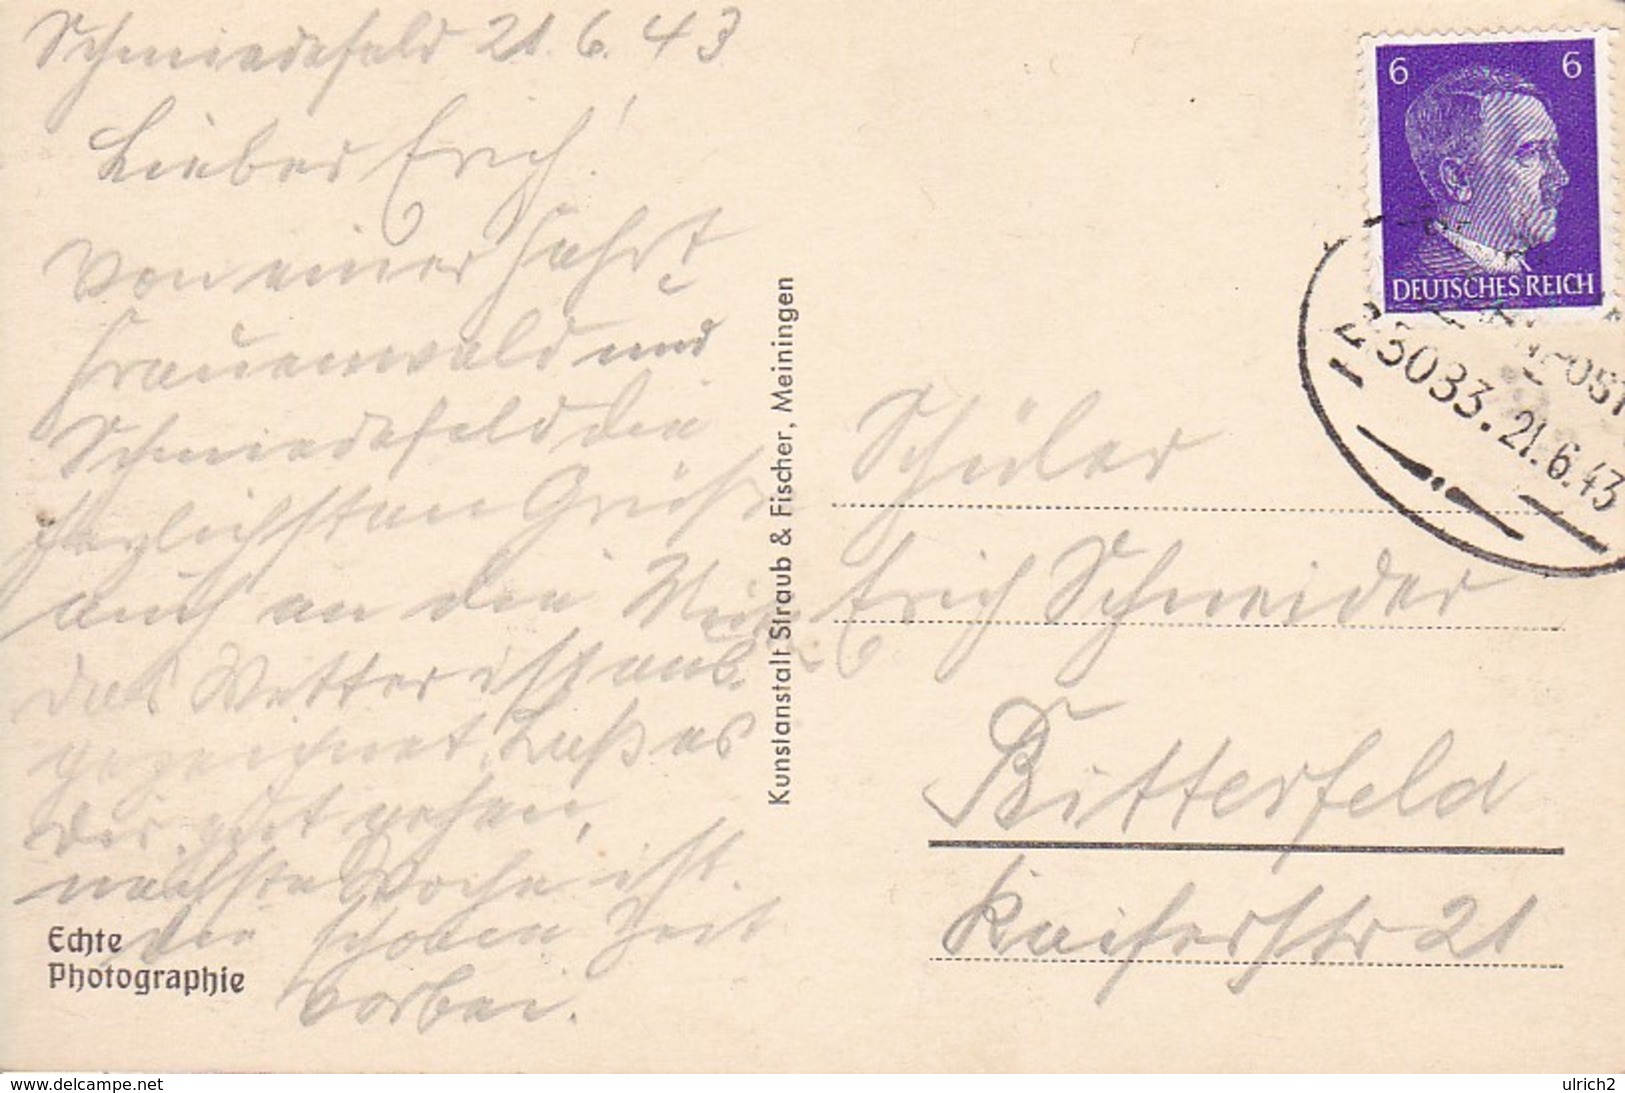 Schmiedefeld 21.6.43
Lieber Erich!
Von einer Fahrt
Frauenwald und
Schmiedefeld die
herzlichsten Grüße
auch an die
das Wetter ist aus-
gezeichnet. Laß es
Dir gut gehen,
nächste Woche ist
die schöne Zeit
vorbei.
Echte
Photographie
Kunstanstalt Straub & Fischer, Meiningen
6 6
DEUTSCHES REICH
23033.21.6.43
Schüler
Erich Schneider
Bitterfeld
Kaiserstr 21
www.delcampe.net
ulrich2